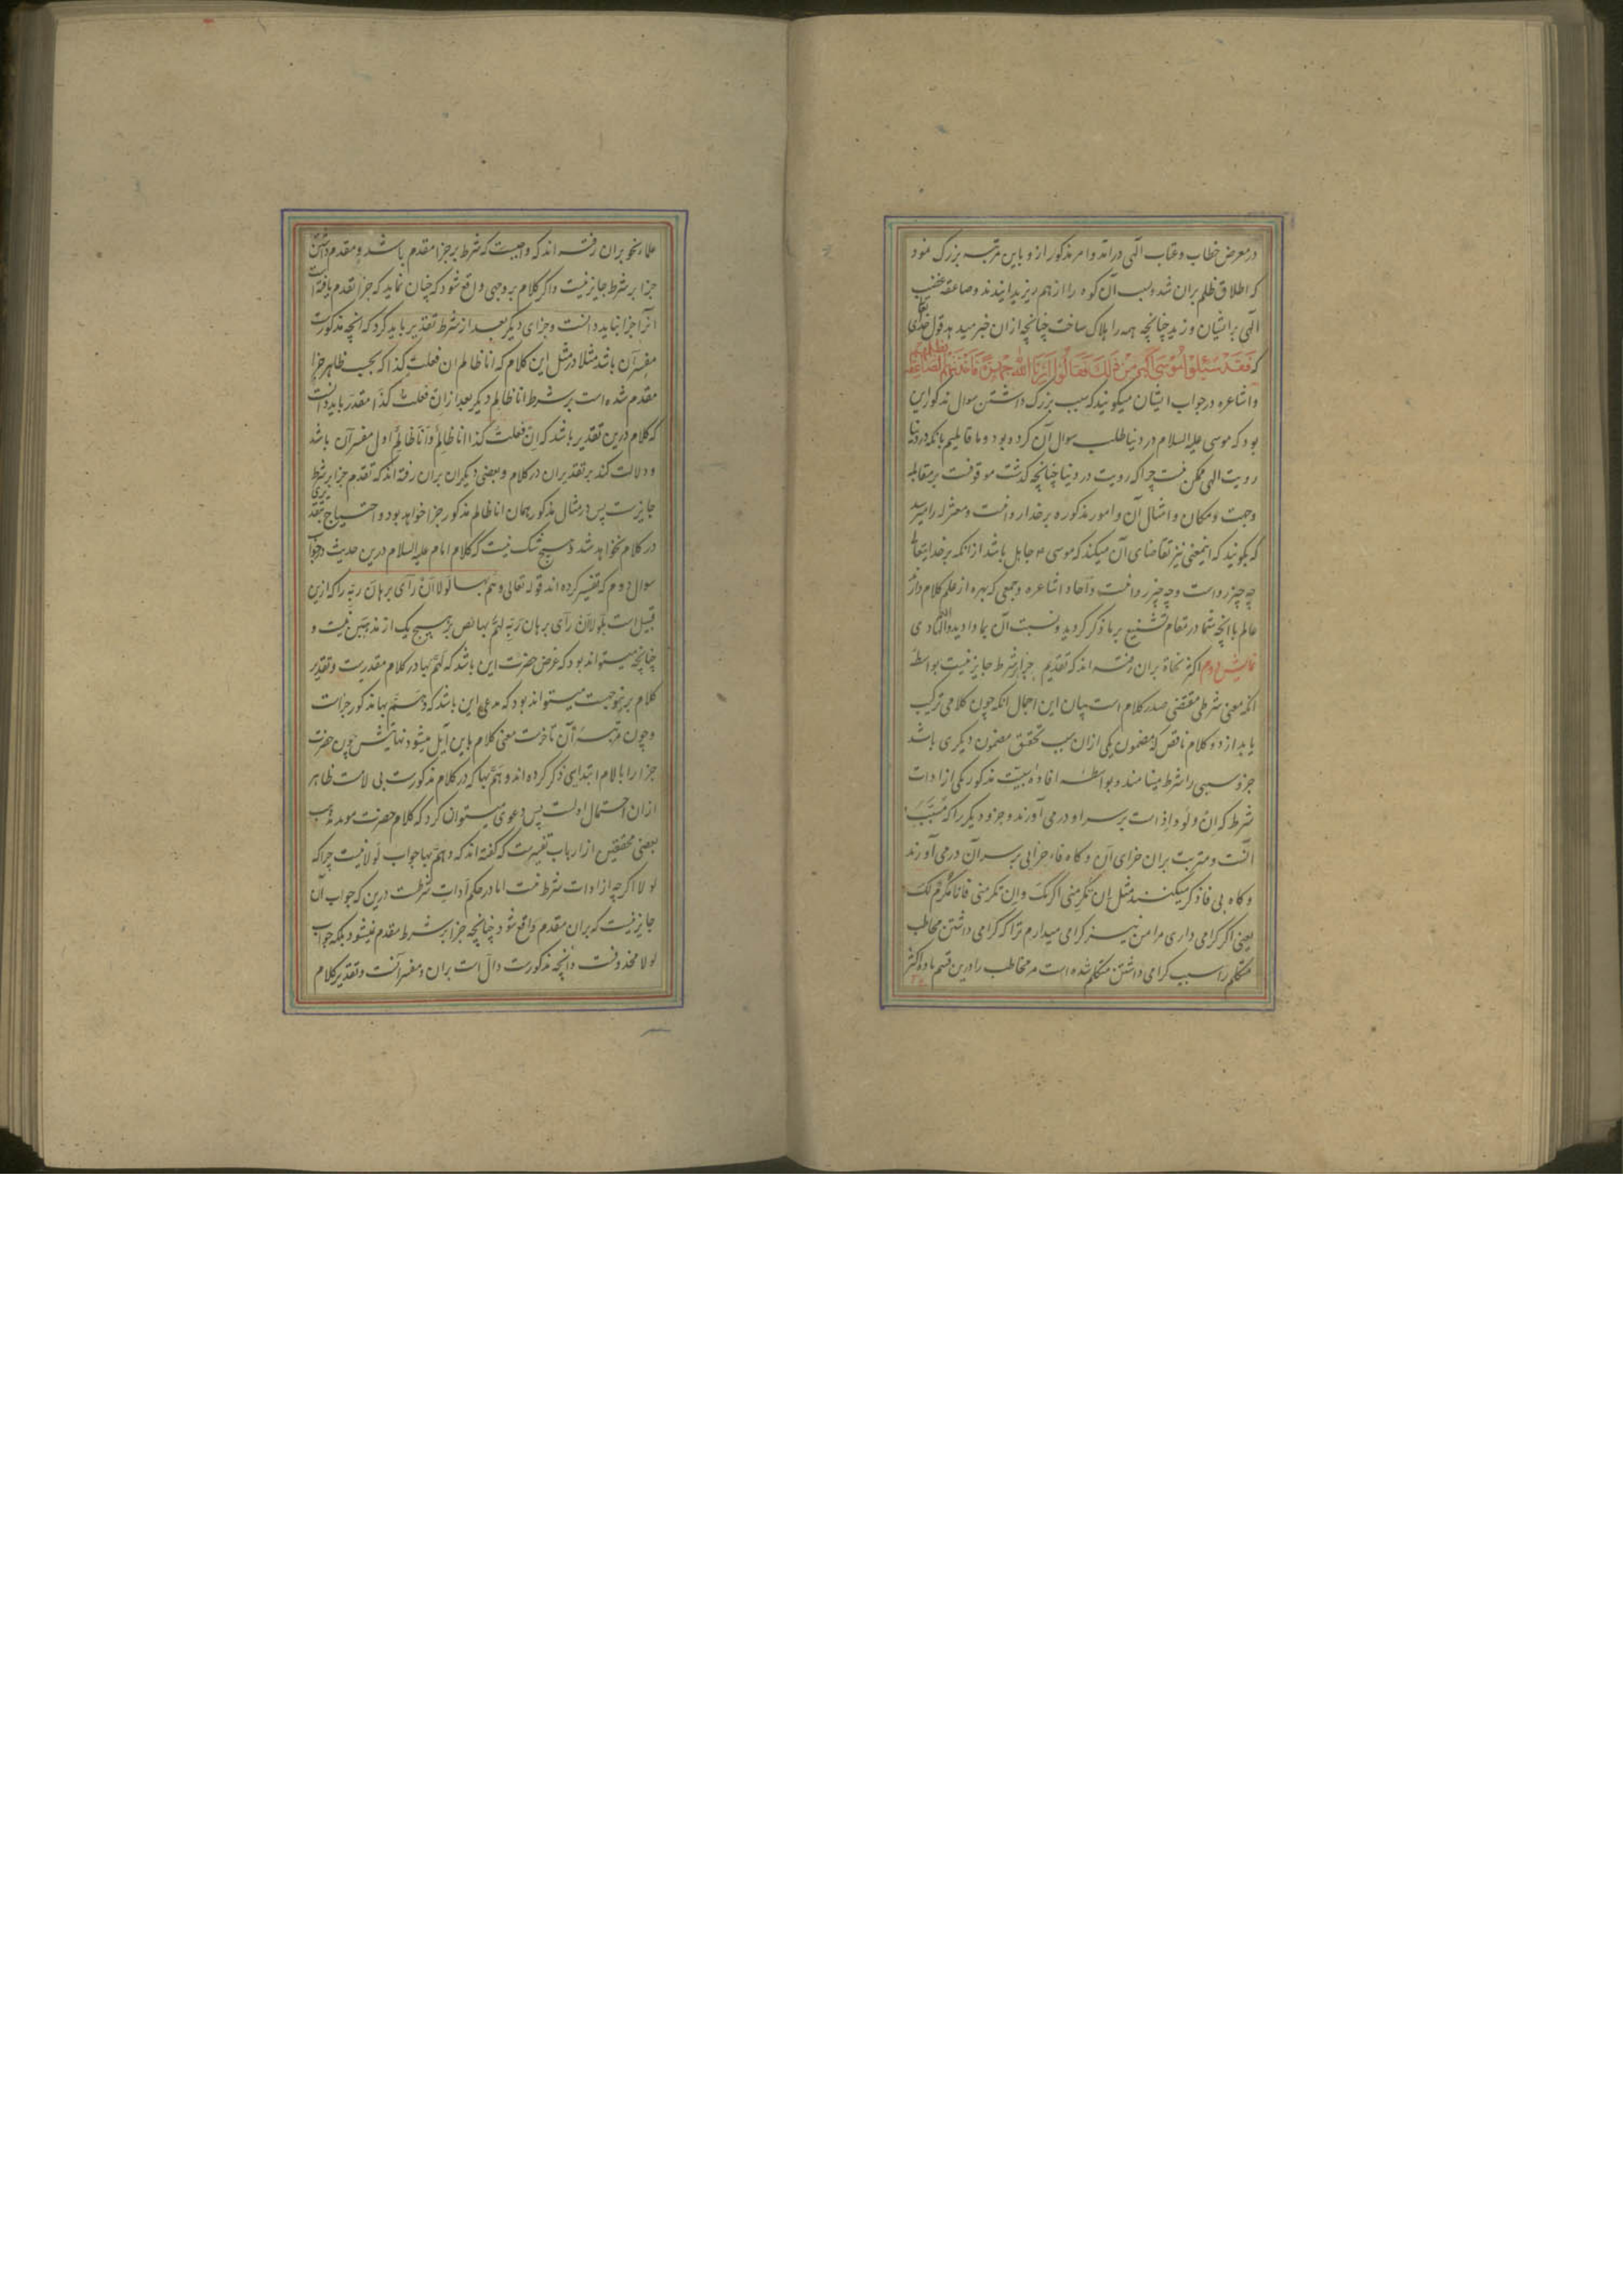 در معرض خطاب و عتاب الهی درآمد و امر مذکور ازو باین مرتبه بزرک نمود
که اطلاق ظلم بران شد و بسبب آن کوه را از هم ریزیده ایندند و صاعقه غضب
الهی بر ایشان وزید چنانچه همه را هلاک ساخت چنانچه ازان خبر میدهد قول خدای تعالی
که فَقَدْ سَئَلُوا مُوسَی اَکْبَرَ مِنْ ذٰلِکَ فَقَالُوا اَرِنَا اللهَ جَهْرَةً فَاَخَذَتْهُمُ الصَّاعِقَةُ بظلمهم
و اشاعره در جواب ایشان میکویند که سبب بزرک داشتن سوال مذکور این
بود که موسی علیه السلام در دنیا طلب سوال آن کرده بود و ما قایلیم بانکه در دنیا
رویت الهی ممکن نیست چرا که رویت در دنیا چنانچه کذشت موقوفست بر مقابله
وجهت و مکان و امثال آن و امور مذکوره بر خدا روا نیست و معتزله را میرسد
که بکویند که اینمعنی نیز تقاضای آن میکند که موسی ع جاهل باشد از انکه بر خدایتعالی
چه چیز رواست و چه چیز روا نیست و آحاد اشاعره و جمعی که بهره از علم کلام دارند
عالم باانچه شما در مقام تشنیع بر ما ذکر کردید و نسبت آن بما دادید والله الهادی
نمایش دوم اکثر نحاة بران رفته اند که تقدیم جزا بر شرط جایز نیست بواسطه
انکه معنی شرطی مقتضی صدر کلام است بیان این اجمال انکه چون کلامی ترکیب
یابد از دو کلام ناقص که مضمون یکی ازان سبب تحقق مضمون دیکری باشد
جزو سببی را شرط مینامند و بواسطه افاده سببیت مذکور یکی از ادات
شرط که اِن و لَو و اِذ است بر سر او در می آورند و جزو دیکر را که مُسَبَّب
آنست و مترتب بران جزای آن و کاه فاء جزایی بر سر آن در می آورند
و کاه بی فا ذکر میکنند مثل اِن تکرمنی اکرمک و اِن تکرمنی فانا مکرم لک
یعنی اکر کرامی داری مرا من نیز کرامی میدارم ترا که کرامی داشتن مخاطب
متکلم را سبب کرامی داشتن متکلم شده است مر مخاطب را و درین قسم مادّه اکثر
علماء نحو بران رفته اند که واجبست که شرط بر جزا مقدم باشد و مقدم داشتن
جزا بر شرط جایز نیست و اکر کلام بر وجهی واقع شود که چنان نماید که جزا تقدم یافته است
آنرا جزا نباید دانست و جزای دیکر بعد از شرط تقدیر باید کرد که انچه مذکورست
مفسر آن باشد مثلا در مثل این کلام که انا ظالم ان فعلت کذا که بحسب ظاهر جزا
مقدم شده است بر شرط انا ظالم دیکر بعد از ان فعلت کذا مقدر باید دانست
که کلام درین تقدیر باشد که اِن فعلت کذا انا ظالم و انا ظالم اول مفسر آن باشد
و دلالت کند بر تقدیر ان در کلام و بعضی دیکران بران رفته اند که تقدم جزا بر شرط
جایزست پس در مثال مذکور همان انا ظالم مذکور جزا خواهد بود و احتیاج بتقدیری
در کلام نخواهد شد و هیچ شک نیست که کلام امام علیه السلام درین حدیث در جواب
سوال دوم که تفسیر کرده اند قوله تعالی وهَمَّ بها لَولا اَن رَآی برهان ربه را که ازین
قبیل است بلولا اَن رَآی برهان رَبِّه لهَمَّ بها نص بر هیچ یک از مذهبین نیست و
چنانچه میتواند بود که غرض حضرت این باشد که لَهَمَّ بها در کلام مقدریت و تقدیر
کلام بر نهجیست میتواند بود که مدعی این باشد که وَهَمَّ بها مذکور جزاست
و چون مرتبه آن تاخرست معنی کلام باین آیل میشود نهایتش چون حضرت
جزا را با لام ابتدای ذکر کرده اند و هَمَّ بها که در کلام مذکورست بی لامست ظاهر
ازان احتمال اولست پس دعوی میتوان کرد که کلام حضرت موید مذهب
بعضی محققین از ارباب تفسیرست که کفته اند که وهَمَّ بها جواب لولا نیست چرا که
لولا اکر چه از ادات شرط نیست اما در حکم ادات شرطست درین که جواب آن
جایز نیست که بران مقدم واقع شود چنانچه جزا بر شرط مقدم نمیشود بلکه جواب
لولا محذوفست و انچه مذکورست دالّ است بران و مفسر آنست و تقدیر کلام